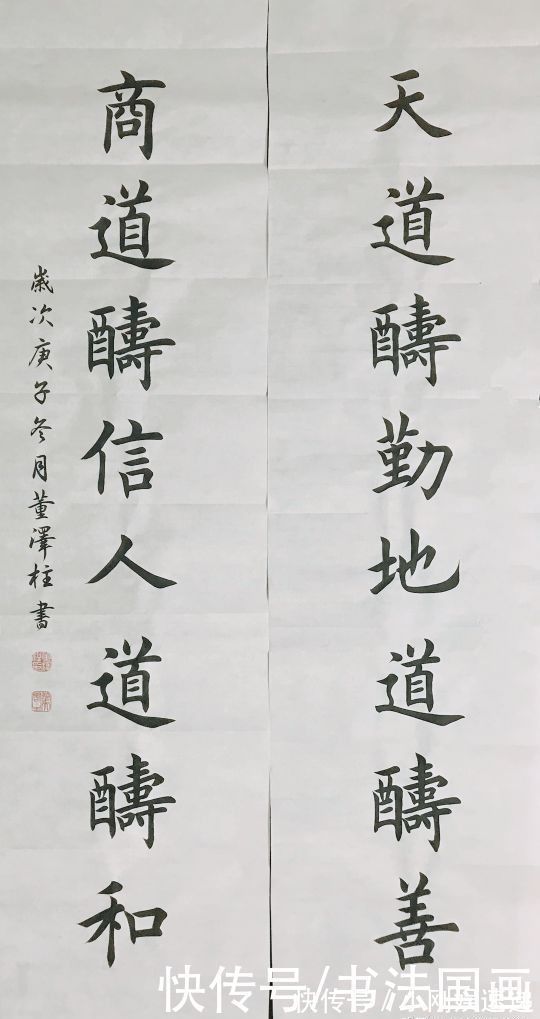 天道醻勤地道醻善
商道醻信人道醻和
歲次庚子冬月董澤柱書
快传号/书法国画
快传号 / 小刚娱速递